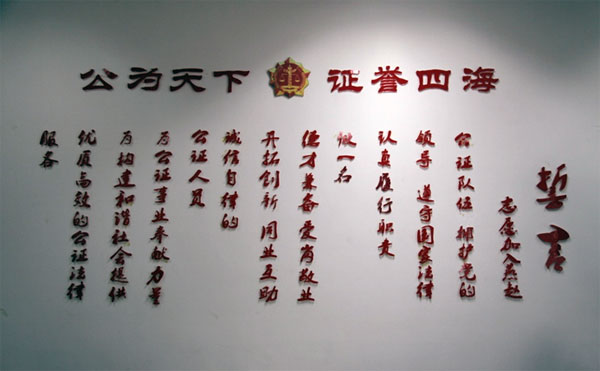 公为天下 证誉四海
誓言
志愿加入燕赵
公证队伍 拥护党的
领导 遵守国家法律
认真履行职责
做一名
德才兼备 爱岗敬业
开拓创新 同业互助
诚信自律的
公证人员
为公证事业奉献力量
为构建和谐社会提供
优质高效的公证法律
服务